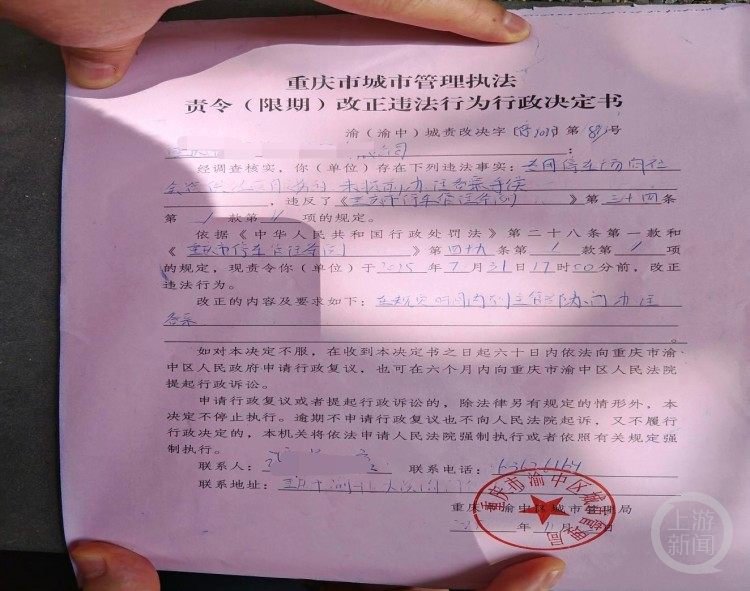 重庆市城市管理执法
责令（限期）改正违法行为行政决定书
渝（渝中）城责改决字 第 号
公司：
经调查核实，你（单位）存在下列违法事实：
未按规定办理备案手续
，违反了《重庆市停车管理条例》第三十四条
第 1 款第 项的规定。
依据《中华人民共和国行政处罚法》第二十八条第一款和
《重庆市停车管理条例》第四十九条第 1 款第 1 项
的规定，现责令你（单位）于2025年7月31日17时00分前，改正
违法行为。
改正的内容及要求如下：在规定时间内到主管部门办理
备案
。
如对本决定不服，在收到本决定书之日起六十日内依法向重庆市渝
中区人民政府申请行政复议，也可在六个月内向重庆市渝中区人民法院
提起行政诉讼。
申请行政复议或者提起行政诉讼的，除法律另有规定的情形外，本
决定不停止执行。逾期不申请行政复议也不向人民法院起诉，又不履行
行政决定的，本机关将依法申请人民法院强制执行或者依照有关规定强
制执行。
联系人： 联系电话：
联系地址：
重庆市渝中区城市管理局
年 月 日
重庆市渝中区城市管理局
上游新闻